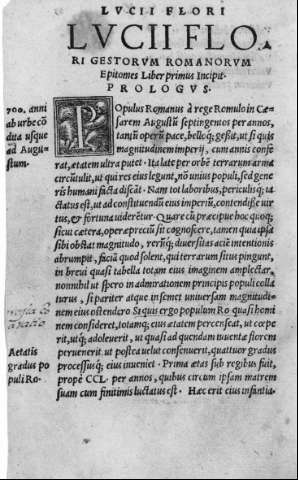 LVCII FLORI
LVCII FLO
RI GESTORVM ROMANORVM
Epitomes Liber primus Incipit.
PROLOGVS.
700. anni
ab urbe cō
dita usque
ad Augu
stum.
POpulus Romanus à rege Romulo in Cæ
sarem Augustũ septingentos per annos,
tantũ operũ pace, belloq; gessit, ut si quis
magnitudinem imperij, cum annis confe
rat, ætatem ultra putet. Ita late per orbẽ terrarum arma
circũtulit, ut qui res eius legunt, nō unius populi, sed ge
neris humani facta discãt. Nam tot laboribus, periculisq; ia
ctatus est, ut ad constituendũ eius imperiũ, contendisse uir
tus, & fortuna uiderẽtur. Quare cũ præcipue hoc quoq;
sicut cætera, operæpreciũ sit cognoscere, tamen quia ipsa
sibi obstat magnitudo, rerũq; diuersitas aciẽ intentionis
abrumpit, faciã quod solent, qui terrarum situs pingunt,
in breui quasi tabella totam eius imaginem amplectar,
nonnihil ut spero in admirationem principis populi colla
turus, si pariter atque insemel uniuersam magnitudi
nem eius ostendero Siquis ergo populum Ro quasi homi
nem consideret, totamq; eius ætatem percenseat, ut cœpe
rit, utq; adoleuerit, ut quasi ad quendam iuuentæ florem
peruenerit ut postea uelut consenuerit, quattuor gradus
processusq; eius inueniet. Prima ætas sub regibus fuit,
propè CCL. per annos, quibus circum ipsam matrem
suam cum finitimis luctatus est. Hæc erit eius infantia.
Aetatis
gradus po
puli Ro-